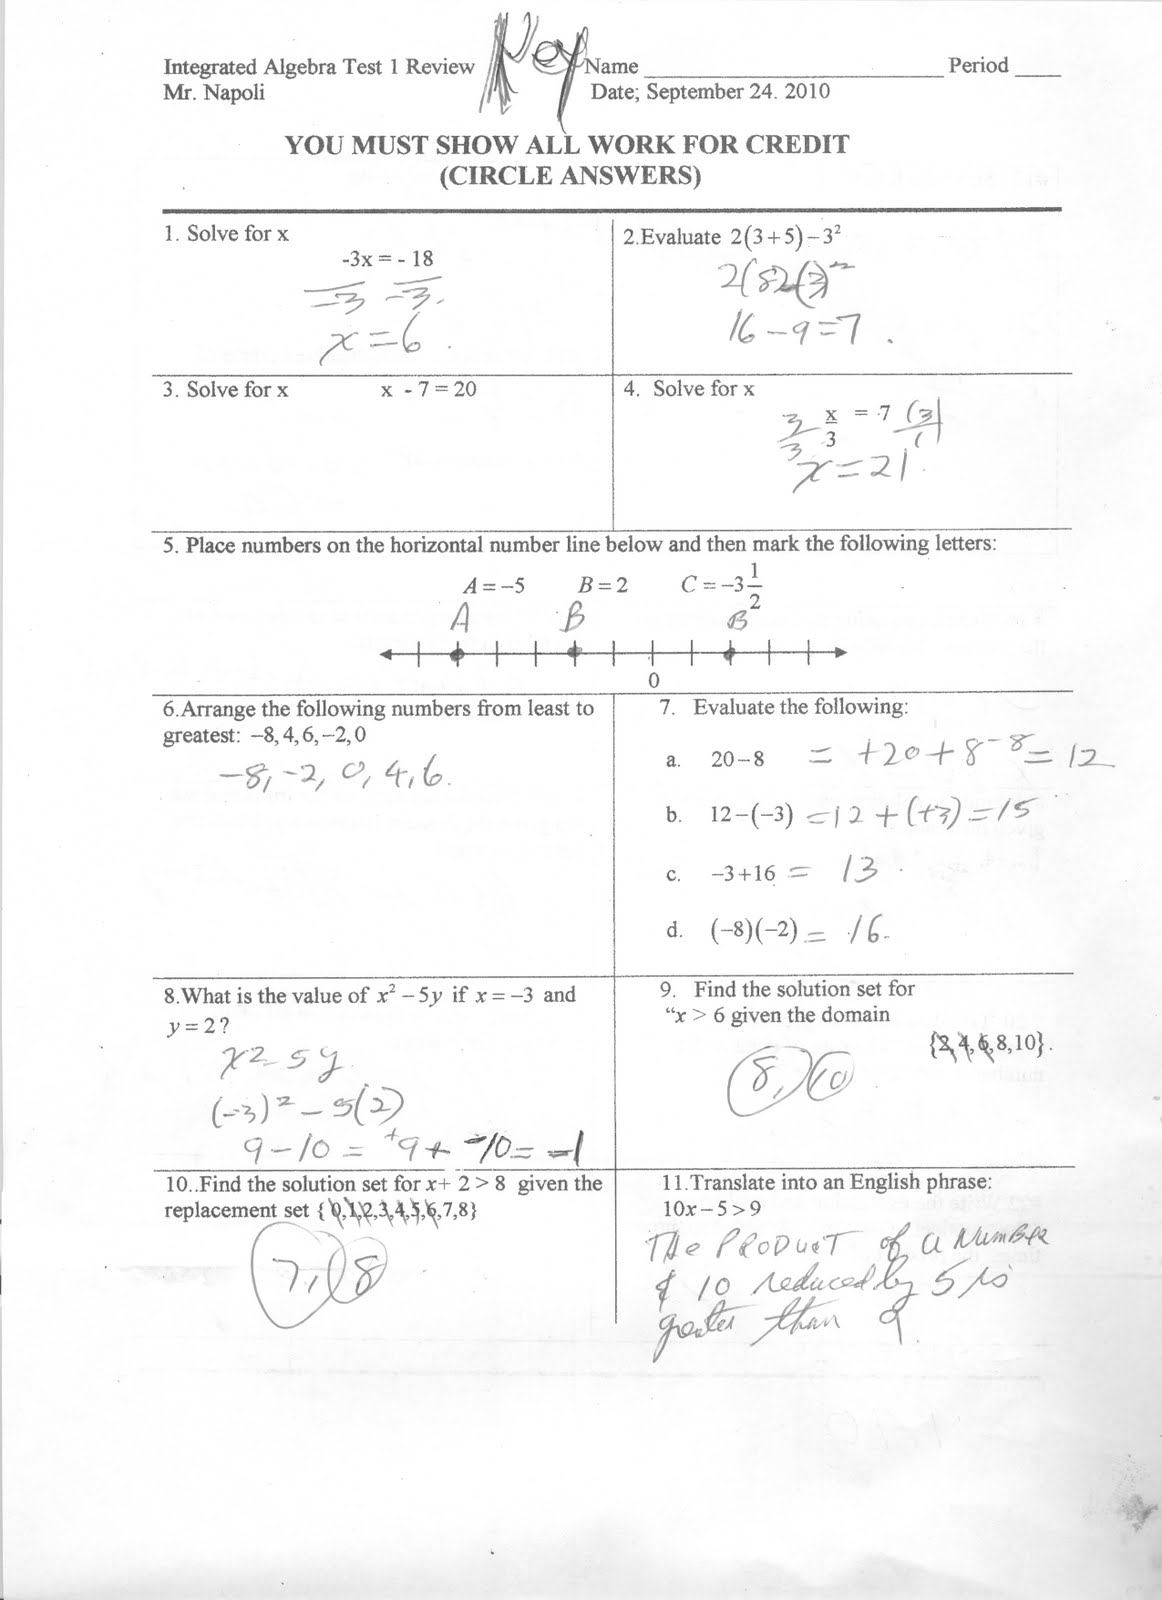 Key
Integrated Algebra Test 1 Review Name ________ Period ____
Mr. Napoli Date; September 24. 2010
YOU MUST SHOW ALL WORK FOR CREDIT
(CIRCLE ANSWERS)
1. Solve for x
-3x = - 18
-3 -3
x = 6
2.Evaluate 2(3+5)−3²
16 − 9 = 7
3. Solve for x x - 7 = 20
4. Solve for x
3 x = 7 (3)
3 3 1
x = 21
5. Place numbers on the horizontal number line below and then mark the following letters:
A = −5 B = 2 C = −3 1/2
A B B
0
6.Arrange the following numbers from least to
greatest: −8, 4, 6, −2, 0
−8, −2, 0, 4, 6.
7. Evaluate the following:
a. 20−8 = +20 + 8 − 8 = 12
b. 12−(−3) = 12 + (+3) = 15
c. −3+16 = 13
d. (−8)(−2) = 16.
8.What is the value of x² − 5y if x = −3 and
y = 2?
x2 − 5y
(−3)² − 5(2)
9 − 10 = +9 + −10 = −1
9. Find the solution set for
“x > 6 given the domain
{2, 4, 6, 8, 10}.
8, 10
10..Find the solution set for x+ 2 > 8 given the
replacement set { 0,1,2,3,4,5,6,7,8}
7, 8
11.Translate into an English phrase:
10x − 5 > 9
THe PRODUCT of a NumBer
& 10 reduced by 5 is
greater than 9.